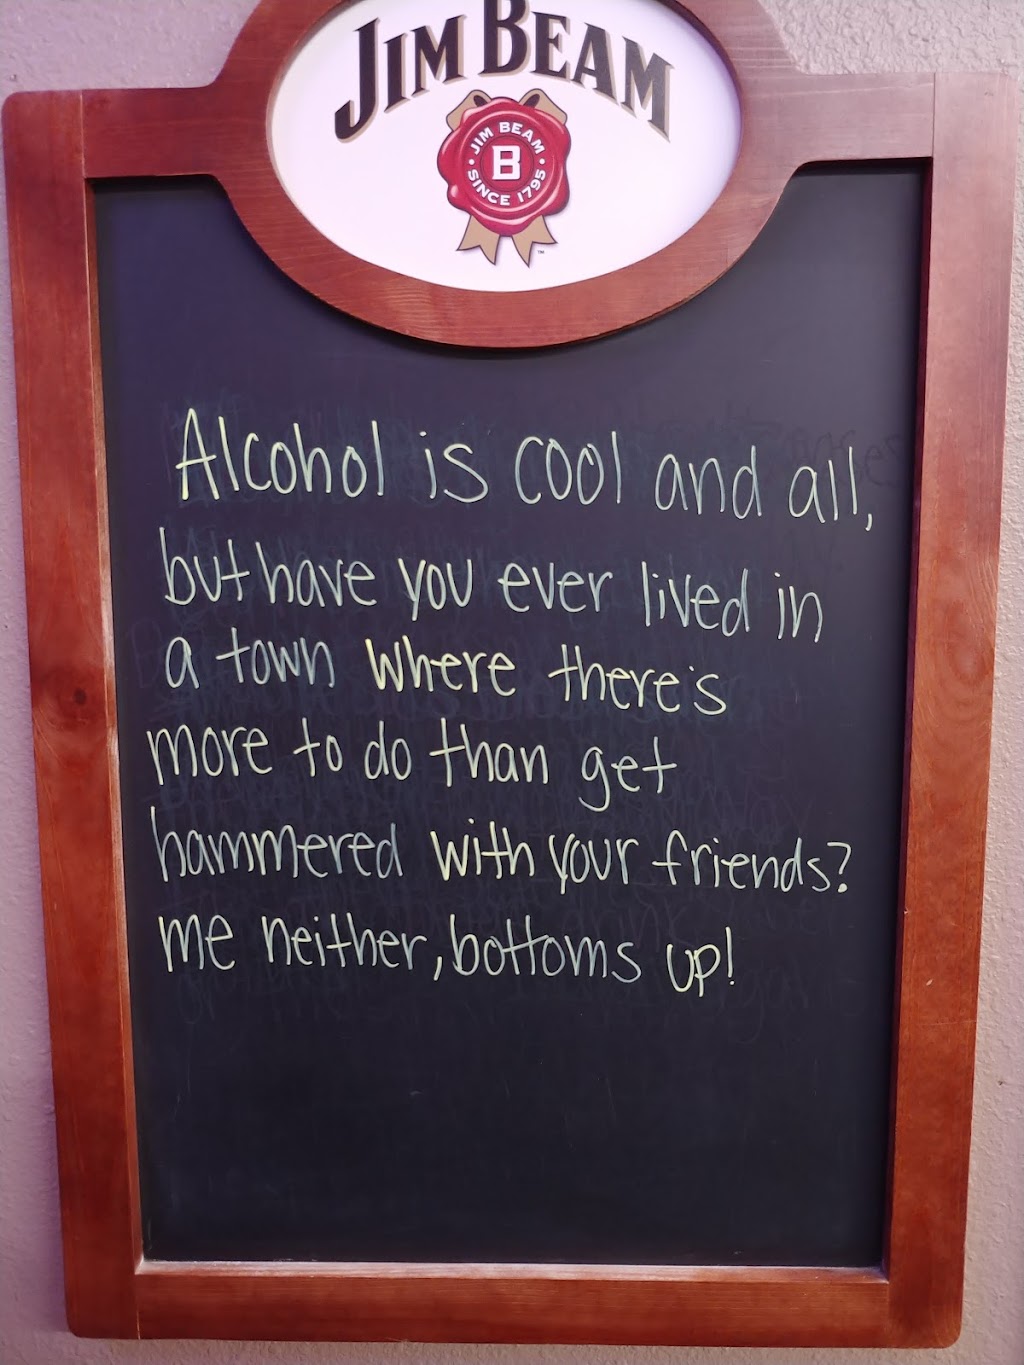 JIM BEAM
JIM BEAM
B
SINCE 1795
™
Alcohol is cool and all,
but have you ever lived in
a town where there's
more to do than get
hammered with your friends?
me neither, bottoms up!